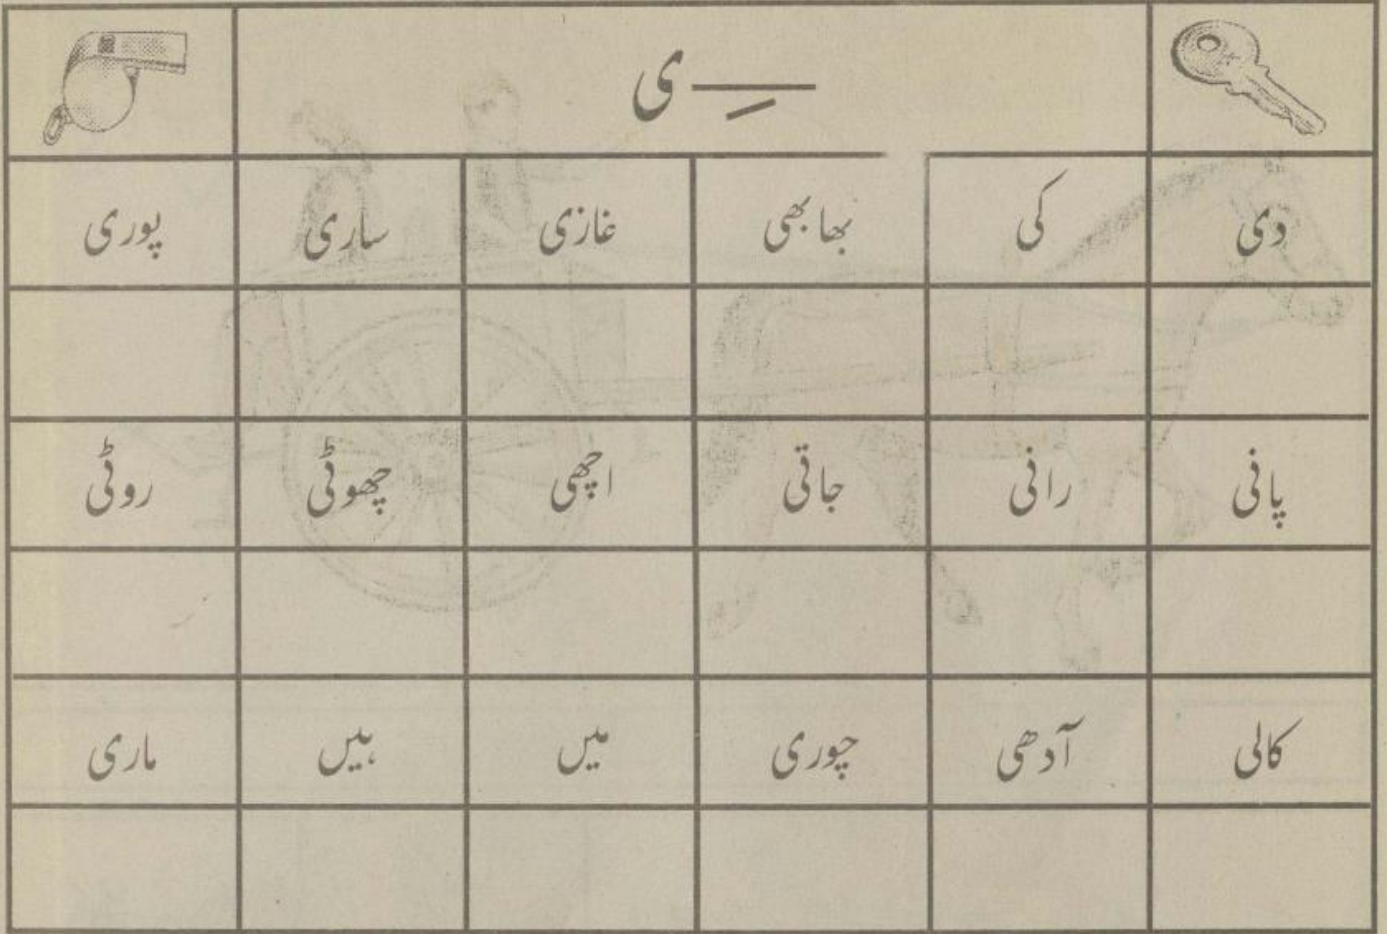 ـِـ ی
دی کی بھابھی غازی ساری پوری
پانی رانی جاتی اچھی چھوٹی روٹی
کالی آدھی چوری میں ہیں ماری